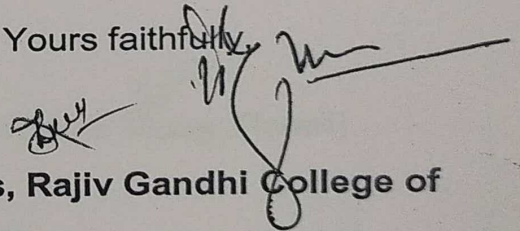 Yours faithfully,
s, Rajiv Gandhi College of